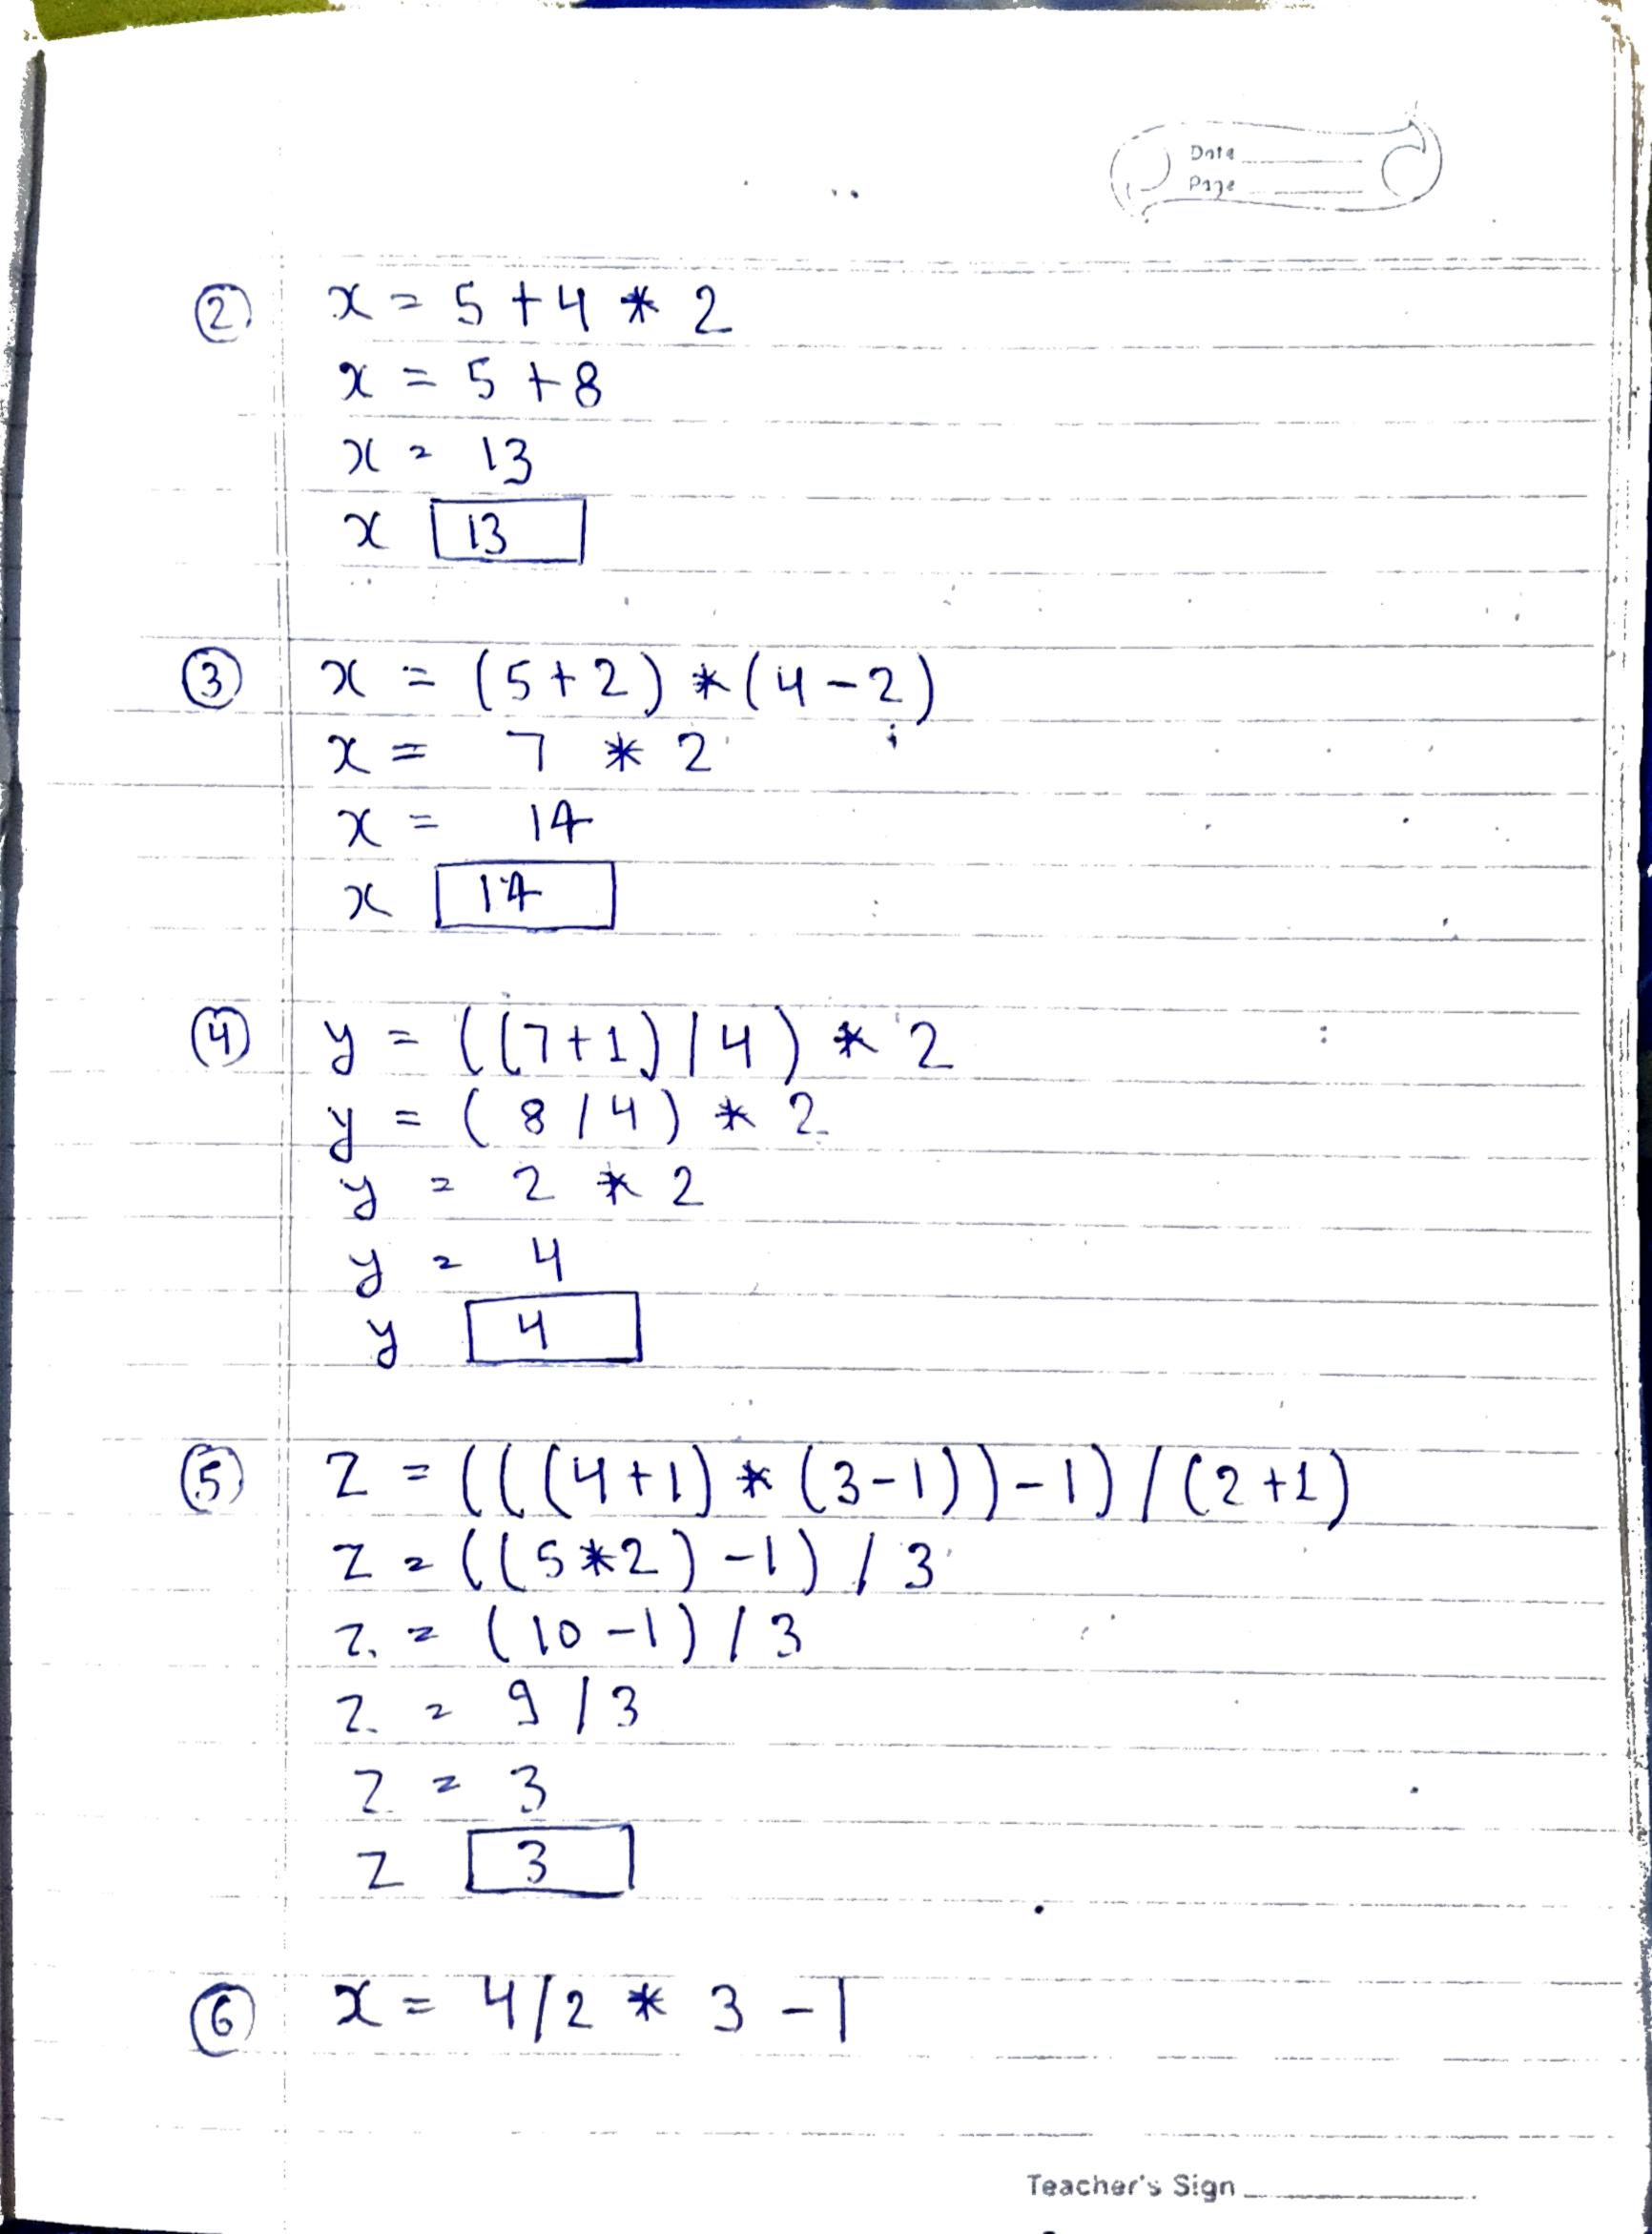 Date
Page
② x = 5 + 4 * 2
x = 5 + 8
x = 13
x 13
③ x = (5+2) * (4-2)
x = 7 * 2
x = 14
x 14
④ y = ((7+1)/4) * 2
y = (8/4) * 2
y = 2 * 2
y = 4
y 4
⑤ z = (((4+1) * (3-1)) - 1) / (2+1)
z = ((5*2) - 1) / 3
z = (10-1) / 3
z = 9/3
z = 3
z 3
⑥ x = 4/2 * 3 - 1
Teacher's Sign